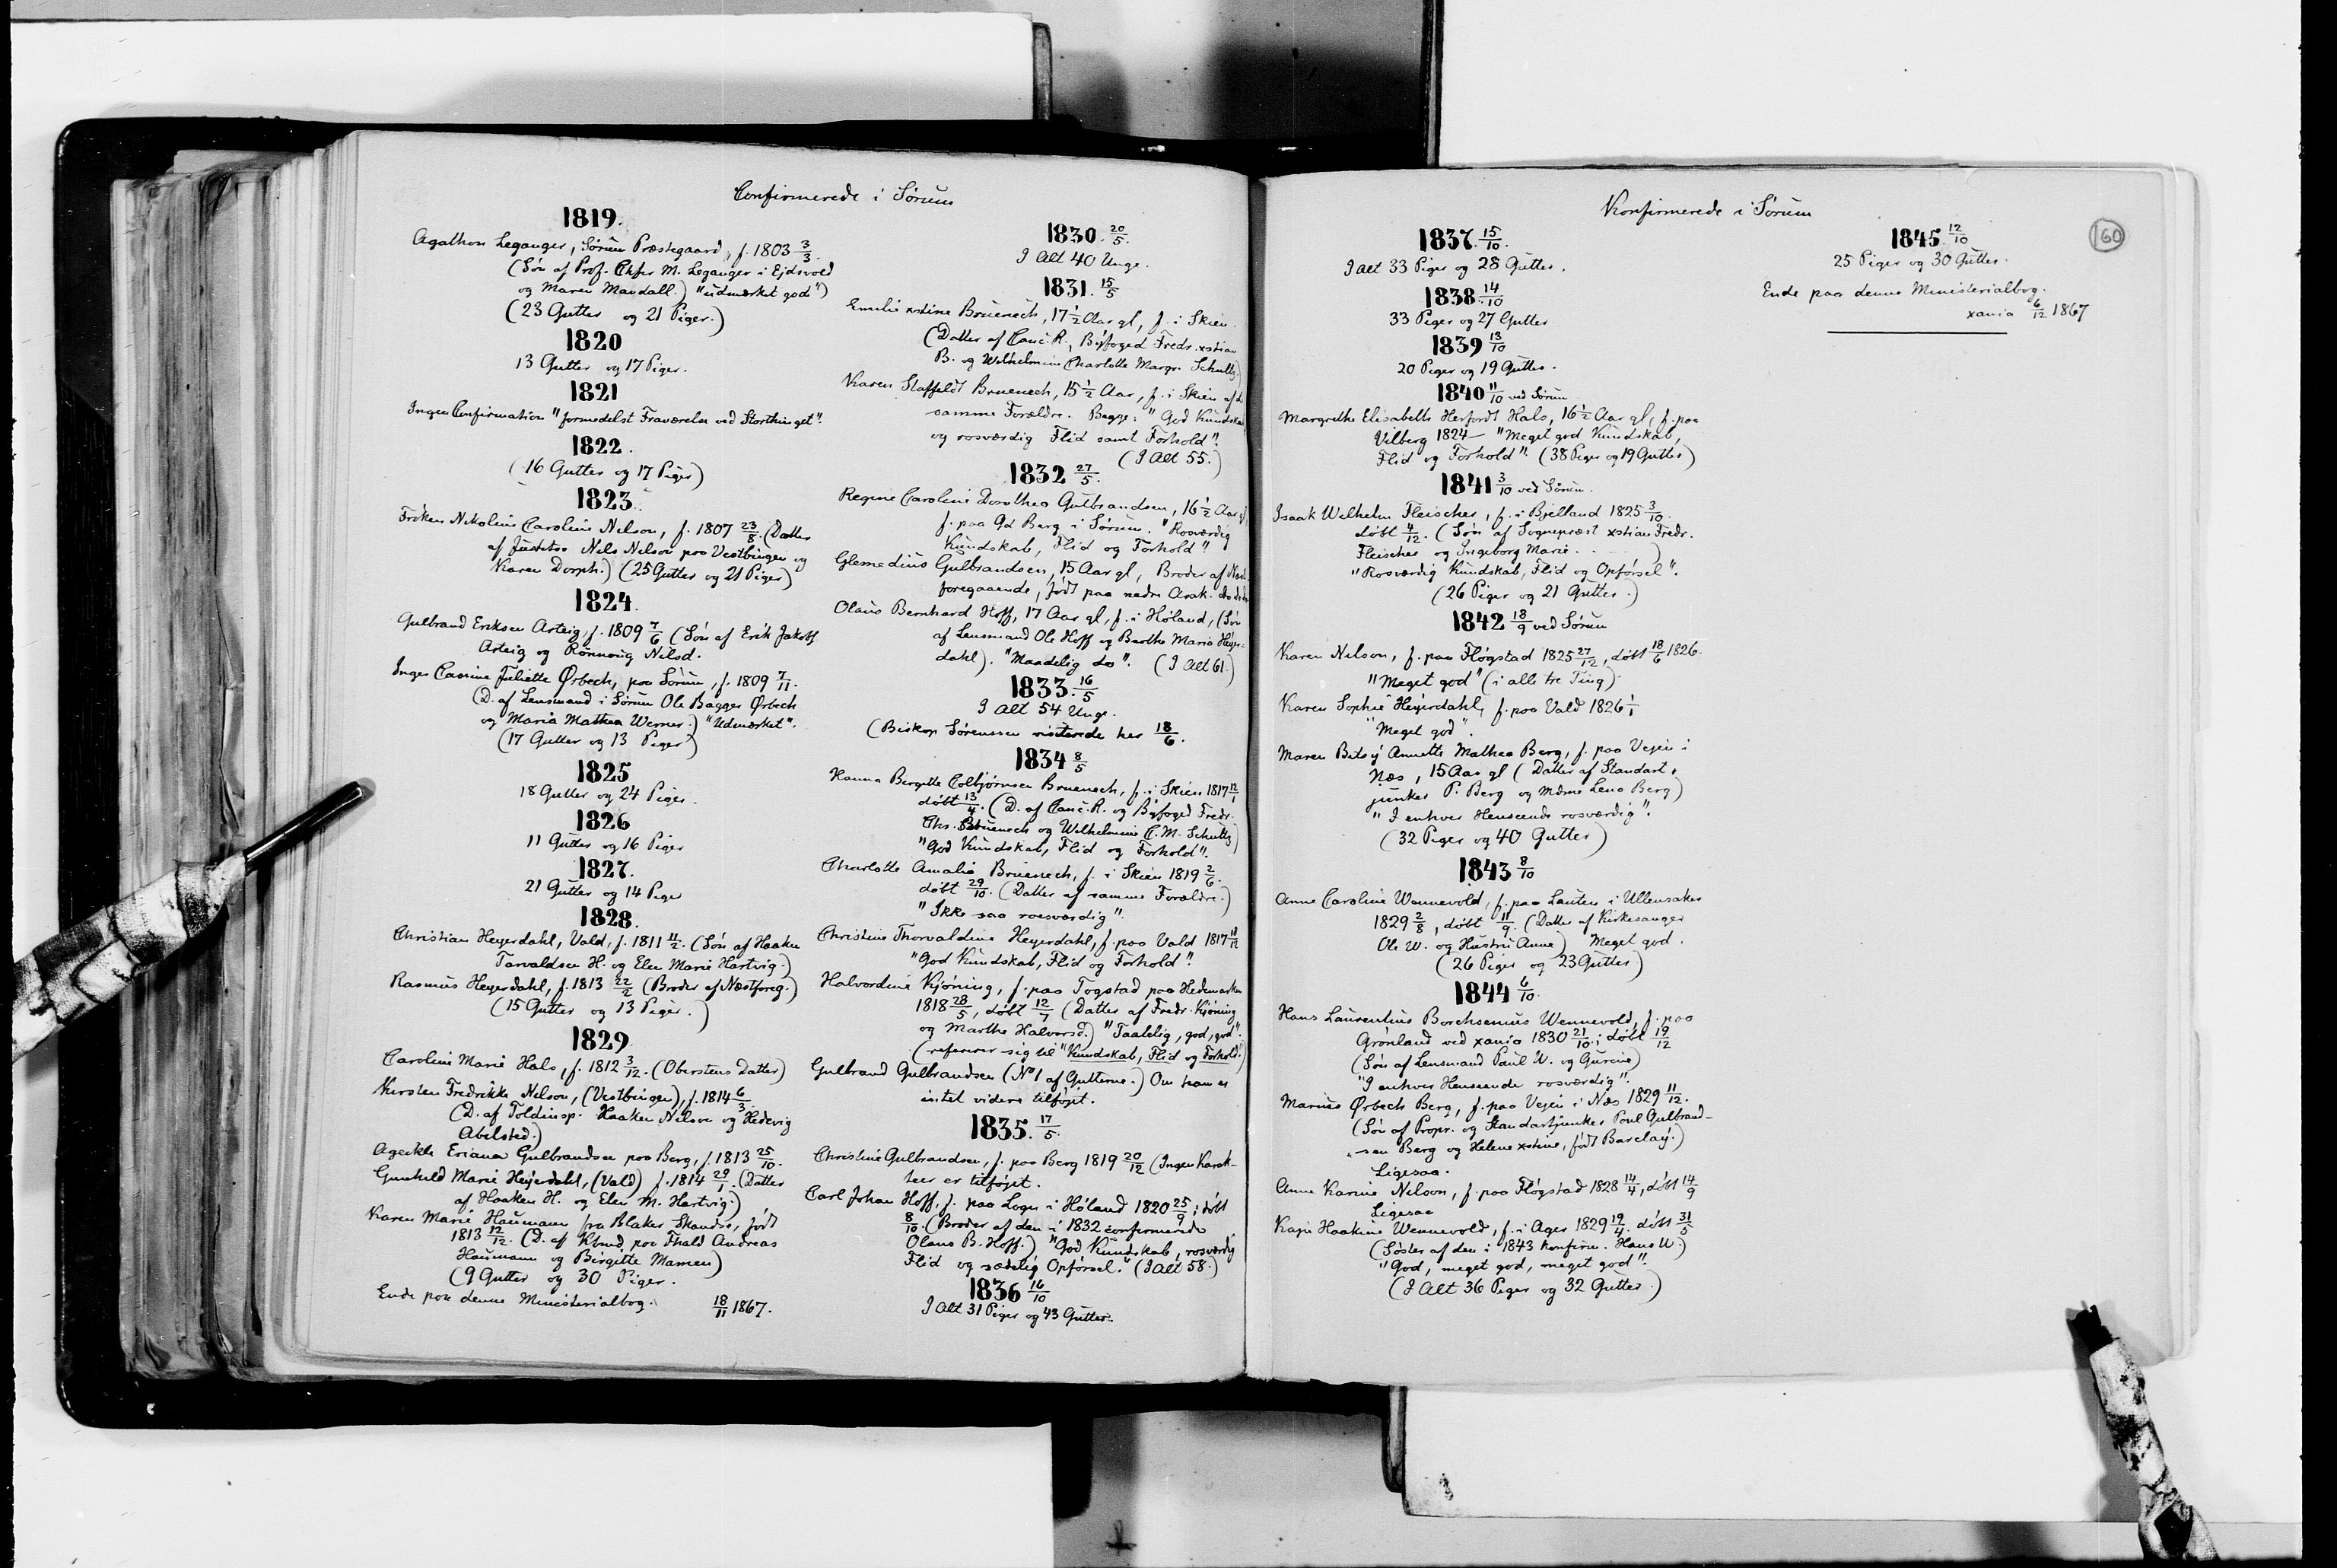 Confirmerede i Sörum
1819.
Agathon Leganger, Sörum Præstegaard, f. 1803 3/3.
(Søn af Prof. Chfr M. Leganger i Ejdsvold
og Maren Mandall.) "udmærket god")
(23 Gutter og 21 Piger.)
1820
13 Gutter og 17 Piger.
1821
Ingen Confirmation "formedelst Fraværelse ved Storthinget".
1822.
(16 Gutter og 17 Piger)
1823.
Fröken Nikoline Caroline Nelson, f. 1807 23/8. (Datter
af Justitsr. Nils Nelson paa Vestbingen og
Karen Dorph.) (25 Gutter og 21 Piger)
1824.
Gulbrand Eriksen Arteig, f. 1809 7/6 (Søn af Erik Jakobs.
Arteig og Rønnoug Nilsd.
Inger Casine Juliette Ørbech, paa Sörum, f. 1809 7/11.
(D. af Lensmand i Sörum Ole Bagger Ørbech
og Maria Mathea Werner.) "Udmærket".
(17 Gutter og 13 Piger)
1825
18 Gutter og 24 Piger.
1826
11 Gutter og 16 Piger
1827.
21 Gutter og 14 Pige
1828.
Christian Heyerdahl, Vald, f. 1811 11/2. (Søn af Haaken
Tarvaldsen H. og Elen Marie Hartvig.)
Rasmus Heyerdahl, f. 1813 22/2 (Broder af Næstforeg.)
(15 Gutter og 13 Piger.)
1829
Caroline Marie Hals, f. 1812 3/12. (Oberstens Datter)
Kirsten Fredrikke Nelson, (Vestbingen), f. 1814 6/3.
(D. af Toldinsp. Haaken Nelson og Hedevig
Abelsted.)
Agethe Eriana Gulbrandsen paa Berg, f. 1813 25/10.
Gunhild Marie Heyerdahl, (Vald) f. 1814 29/1. (Datter
af Haaken H. og Elen M. Hartvig.)
Karen Marie Haumann fra Blaker Skandse, født
1813 12/12. (D. af Kbmd paa Thald Andreas
Haumann og Birgitte Mamen)
(9 Gutter og 30 Piger.
Ende paa denne Ministerialbog. 18/11 1867.
1830. 20/5.
I Alt 40 Unge.
1831. 15/5
Emilie xstine Bruenech, 17 1/2 Aar gl, f. i Skien.
(Datter af Canc. R., Byfoged Fredr. xstian
B. og Wilhelmine Charlotte Margr. Schultz.)
Karen Staffeldt Bruenech, 15 1/2 Aar, f. i Skien af de
samme Forældre. Begge: "God Kundskab
og rosværdig Flid samt Forhold".
(I Alt 55.)
1832 27/5.
Regine Caroline Dorothea Gulbrandsen, 16 1/2 Aar gl,
f. paa Gd Berg i Sörum. "Rosværdig
Kundskab, Flid og Forhold".
Glemedius Gulbrandsen, 15 Aar gl, Broder af Næst-
foregaaende, født paa nedre Arak. do do do
Olaus Bernhard Hoff, 17 Aar gl, f. i Høland, (Søn
af Lensmand Ole Hoff og Berthe Maria Heyer-
dahl). "Maadelig do". (I Alt 61.)
1833. 16/5
I Alt 54 Unge.
(Biskop Sørenssen visiterede her 18/6.
1834 8/5
Hanna Birgitte Colbjørnsen Bruenech, f. i Skien 1817 12/1
døbt 13/4. (D. af Canc. R. og Byfoged Fredr.
Chr. Bruenech og Wilhelmine C. M. Schultz)
"God Kundskab, Flid og Forhold".
Charlotte Amalia Bruenech, f. i Skien 1819 2/6.
døbt 29/10. (Datter af samme Forældre.)
"Ikke saa roesværdig".
Christine Thorvaldine Heyerdahl, f. paa Vald 1817 18/12
"God Kundskab, Flid og Forhold"
Halvordine Kjöning, f. paa Togstad paa Hedemarken
1818 28/5, døbt 12/7 (Datter af Fredr. Kjöning
og Marthe Halvorsd.) "Taalelig, god, god".
(referer sig til "Kundskab, Flid og Forhold.)
Gulbrand Gulbrandsen (No 1 af Gutterne.) Om ham er
intet videre tilføjet.
1835. 17/5.
Christine Gulbrandsen, f. paa Berg 1819 20/12 (Ingen Karak-
teer er tilføjet.
Carl Johan Hoff, f. paa Logn i Höland 1820 25/9; døbt
8/10. (Broder af den i 1832 confirmerede
Olaus B. Hoff.) "God Kundskab, rosværdig
Flid og sædelig Opførsel." (I Alt 58.)
1836 16/10
I Alt 31 Piger og 43 Gutter.
Konfirmerede i Sörum
60
1837. 15/10.
I alt 33 Piger og 28 Gutter.
1838. 14/10
33 Piger og 27 Gutter
1839 13/10
20 Piger og 19 Gutter.
1840 11/10 ved Sörum
Margrethe Elisabeth Herfordt Hals, 16 1/2 Aar gl, f. paa
Vilberg 1824 — "Meget god Kundskab,
Flid og Forhold". (38 Piger og 19 Gutter)
1841 3/10 ved Sörum.
Isaak Wilhelm Fleischer, f. i Bjelland 1825 3/10.
døbt 4/12. (Søn af Sognepræst xstian Fredr.
Fleischer og Ingeborg Marie . . . . )
"Rosværdig Kundskab, Flid og Opførsel".
(26 Piger og 21 Gutter.)
1842 18/9 ved Sörum
Karen Nilson, f. paa Fløgstad 1825 27/12, døbt 18/6 1826.
"Meget god" (i alle tre Ting)
Karen Sophie Heyerdahl, f. paa Vald 1826 1/1
"Meget god".
Maren Betsy Annette Mathea Berg, f. paa Vejen i
Næs, 15 Aar gl (Datter af Standart,
junker P. Berg og Mdme Lena Berg)
"I enhver Henseende rosværdig".
(32 Piger og 40 Gutter)
1843 8/10
Anne Caroline Wennevold, f. paa Lauten i Ullensaker
1829 2/8, døbt 11/9. (Datter af Kirkesanger
Ole W. og Hustru Anne) Meget god.
(26 Piger og 23 Gutter)
1844 6/10.
Hans Laurentius Borchsenius Wennevold, f. paa
Grønland ved xania 1830 21/10; døbt 19/12
(Søn af Lensmand Paul W. og Gurine)
"I enhver Henseende rosværdig".
Marius Ørbech Berg, f. paa Vejen i Næs 1829 11/12.
(Søn af Propr. og Standartjunker Poul Gulbrand-
sen Berg og Helene xstine, født Barclay.)
Ligesaa.
Anne Karine Nilson, f. paa Fløgstad 1828 14/4, døbt 14/9
Ligesaa
Kaja Haakine Wennevold, f. i Ager 1829 19/4. døbt 31/5
(Søster af den i 1843 konfirm. Hans W.)
"God, meget god, meget god".
(I Alt 36 Piger og 32 Gutter.)
1845. 12/10
25 Piger og 30 Gutter.
Ende paa denne Ministerialbog.
xania 6/12 1867